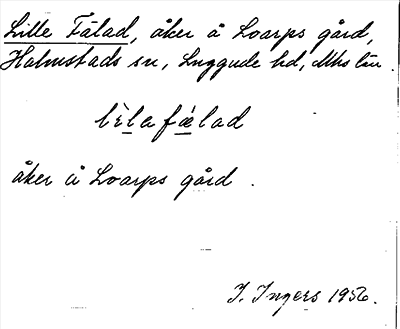 Lille Fälad, åker å Loarps gård,
Halmstads sn, Luggude hd, Mhs län.
lìlafǽlad
åker å Loarps gård.
I. Ingers 1956.